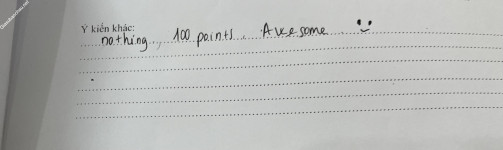 Ý kiến khác:
nothing, 100 points. Awesome